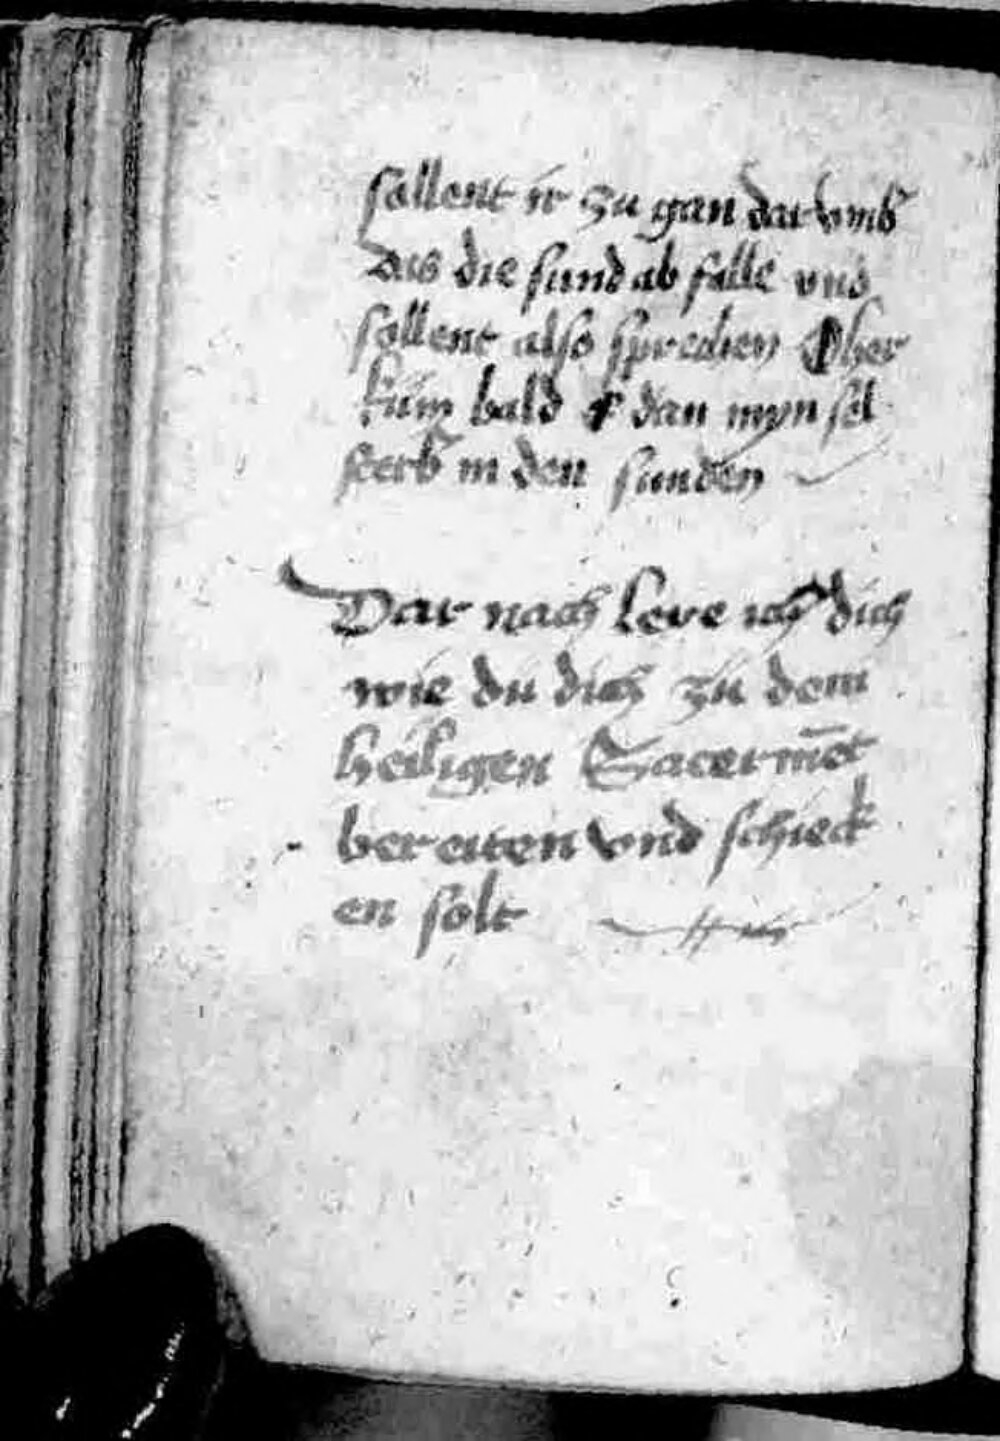 sollent ir zu gan dar vmb
das die sund ab falle vnd
sollent also sprechen O her
kum bald e dan myn sel
sterb in den sunden
Dar nach lere ich dich
wie du dich zu dem
heiligen Sacermēt
bereiten vnd schick
en solt